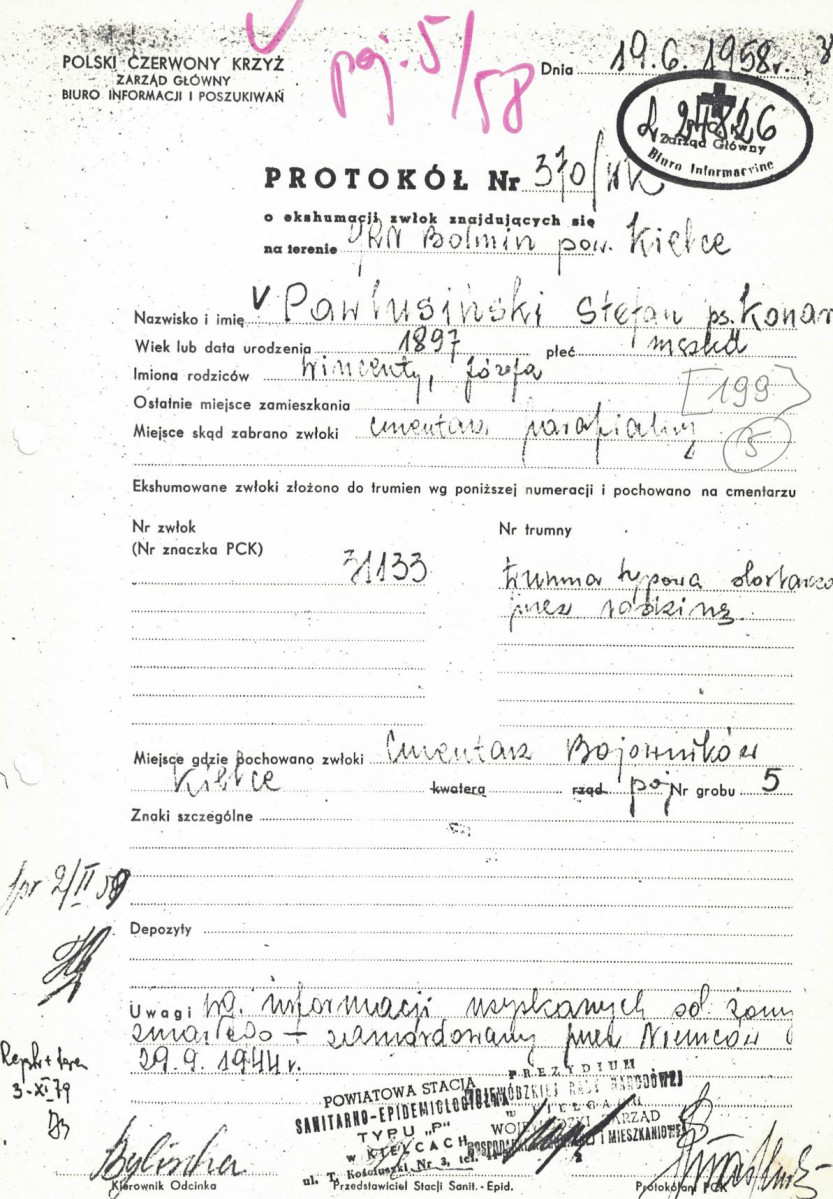 poj. 5/58
POLSKI CZERWONY KRZYŻ
ZARZĄD GŁÓWNY
BIURO INFORMACJI I POSZUKIWAŃ
Dnia 19.6.1958r.
L 24826
Zarząd Główny
Biuro Informacyjne
PROTOKÓŁ Nr 370/
o ekshumacji zwłok znajdujących się
na terenie Bolmin pow. Kielce
Nazwisko i imię V Pawłusiński Stefan ps. Konar
Wiek lub data urodzenia 1897 płeć męska
Imiona rodziców Wincenty, Józefa
Ostatnie miejsce zamieszkania
[199]
Miejsce skąd zabrano zwłoki cmentarz parafialny
5
Ekshumowane zwłoki złożono do trumien wg poniższej numeracji i pochowano na cmentarzu
Nr zwłok
(Nr znaczka PCK)
Nr trumny
31133
trumna typowa dostarczo
przez rodzinę
Miejsce gdzie pochowano zwłoki Cmentarz Bojowników
Kielce kwatera rząd poj Nr grobu 5
Znaki szczególne
spr 2/II 59
Depozyty
Uwagi Wg. informacji uzyskanych od żony
zmarłego – zamordowany przez Niemców
29.9.1944r.
3-XI 79
POWIATOWA STACJA
SANITARNO-EPIDEMIOLOGICZNA
TYPU „P"
w KIELCACH
ul. T. Kościuszki Nr 3, tel.
PREZYDIUM
WOJEWÓDZKIEJ RADY NARODOWEJ
w KIELCACH
ZARZĄD
GOSPODARKI I MIESZKANIOWEJ
Kierownik Odcinka
Przedstawiciel Stacji Sanit.-Epid.
Protokólant PCK